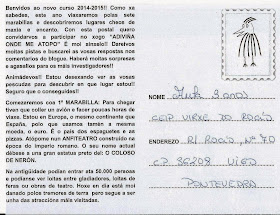 Benvidos ao novo curso 2014-2015!! Como xa
sabedes, este ano viaxaremos polas sete
marabillas e descubriremos lugares cheos de
maxia e encanto. Con esta postal quero
convidarvos a participar no xogo "ADIVIÑA
ONDE ME ATOPO" É moi sinxelo! Dareivos
moitas pistas e buscaredes as vosas respostas nos
comentarios do blogue. Haberá moitas sorpresas
e agasallos para os máis investigadores!!
Animádevos!! Estou desexando ver as vosas
pescudas para descubrir en que lugar estou!!
Seguro que o conseguides!!
Comezaremos coa 1ª MARABILLA: Para chegar
tiven que coller un avión e facer poucas horas de
viaxe. Estou en Europa, o mesmo continente que
España, polo que usamos tamén a mesma
moeda, o euro. É o país dos espaguetes e as
pizzas. Atópome nun ANFITEATRO construído na
época do Imperio romano. O seu nome actual
débese a una gran estatua preto del: O COLOSO
DE NERÓN.
Na antigüidade podían entrar ata 50.000 persoas
e podíanse ver loitas entre gladiadores, loitas de
feras ou obras de teatro. Hoxe en día está moi
danado polos tremores de terra pero segue a ser
unha das atraccións máis visitadas.
NOME 3 anos
CEIP VIRXE DO ROCÍO
ENDEREZO R/ ROCÍO, Nº 70
C.P. 36208 VIGO
PONTEVEDRA